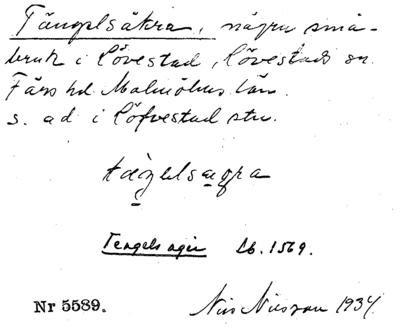 Tängelsåkra, några små-
bruk i Lövestad, Lövestads sn.
Färs hd. Malmöhus län.
s. ad i Löfvestad stn.
Tengels ager Lb. 1569.
Nr 5589. Nils Nilsson 1934.